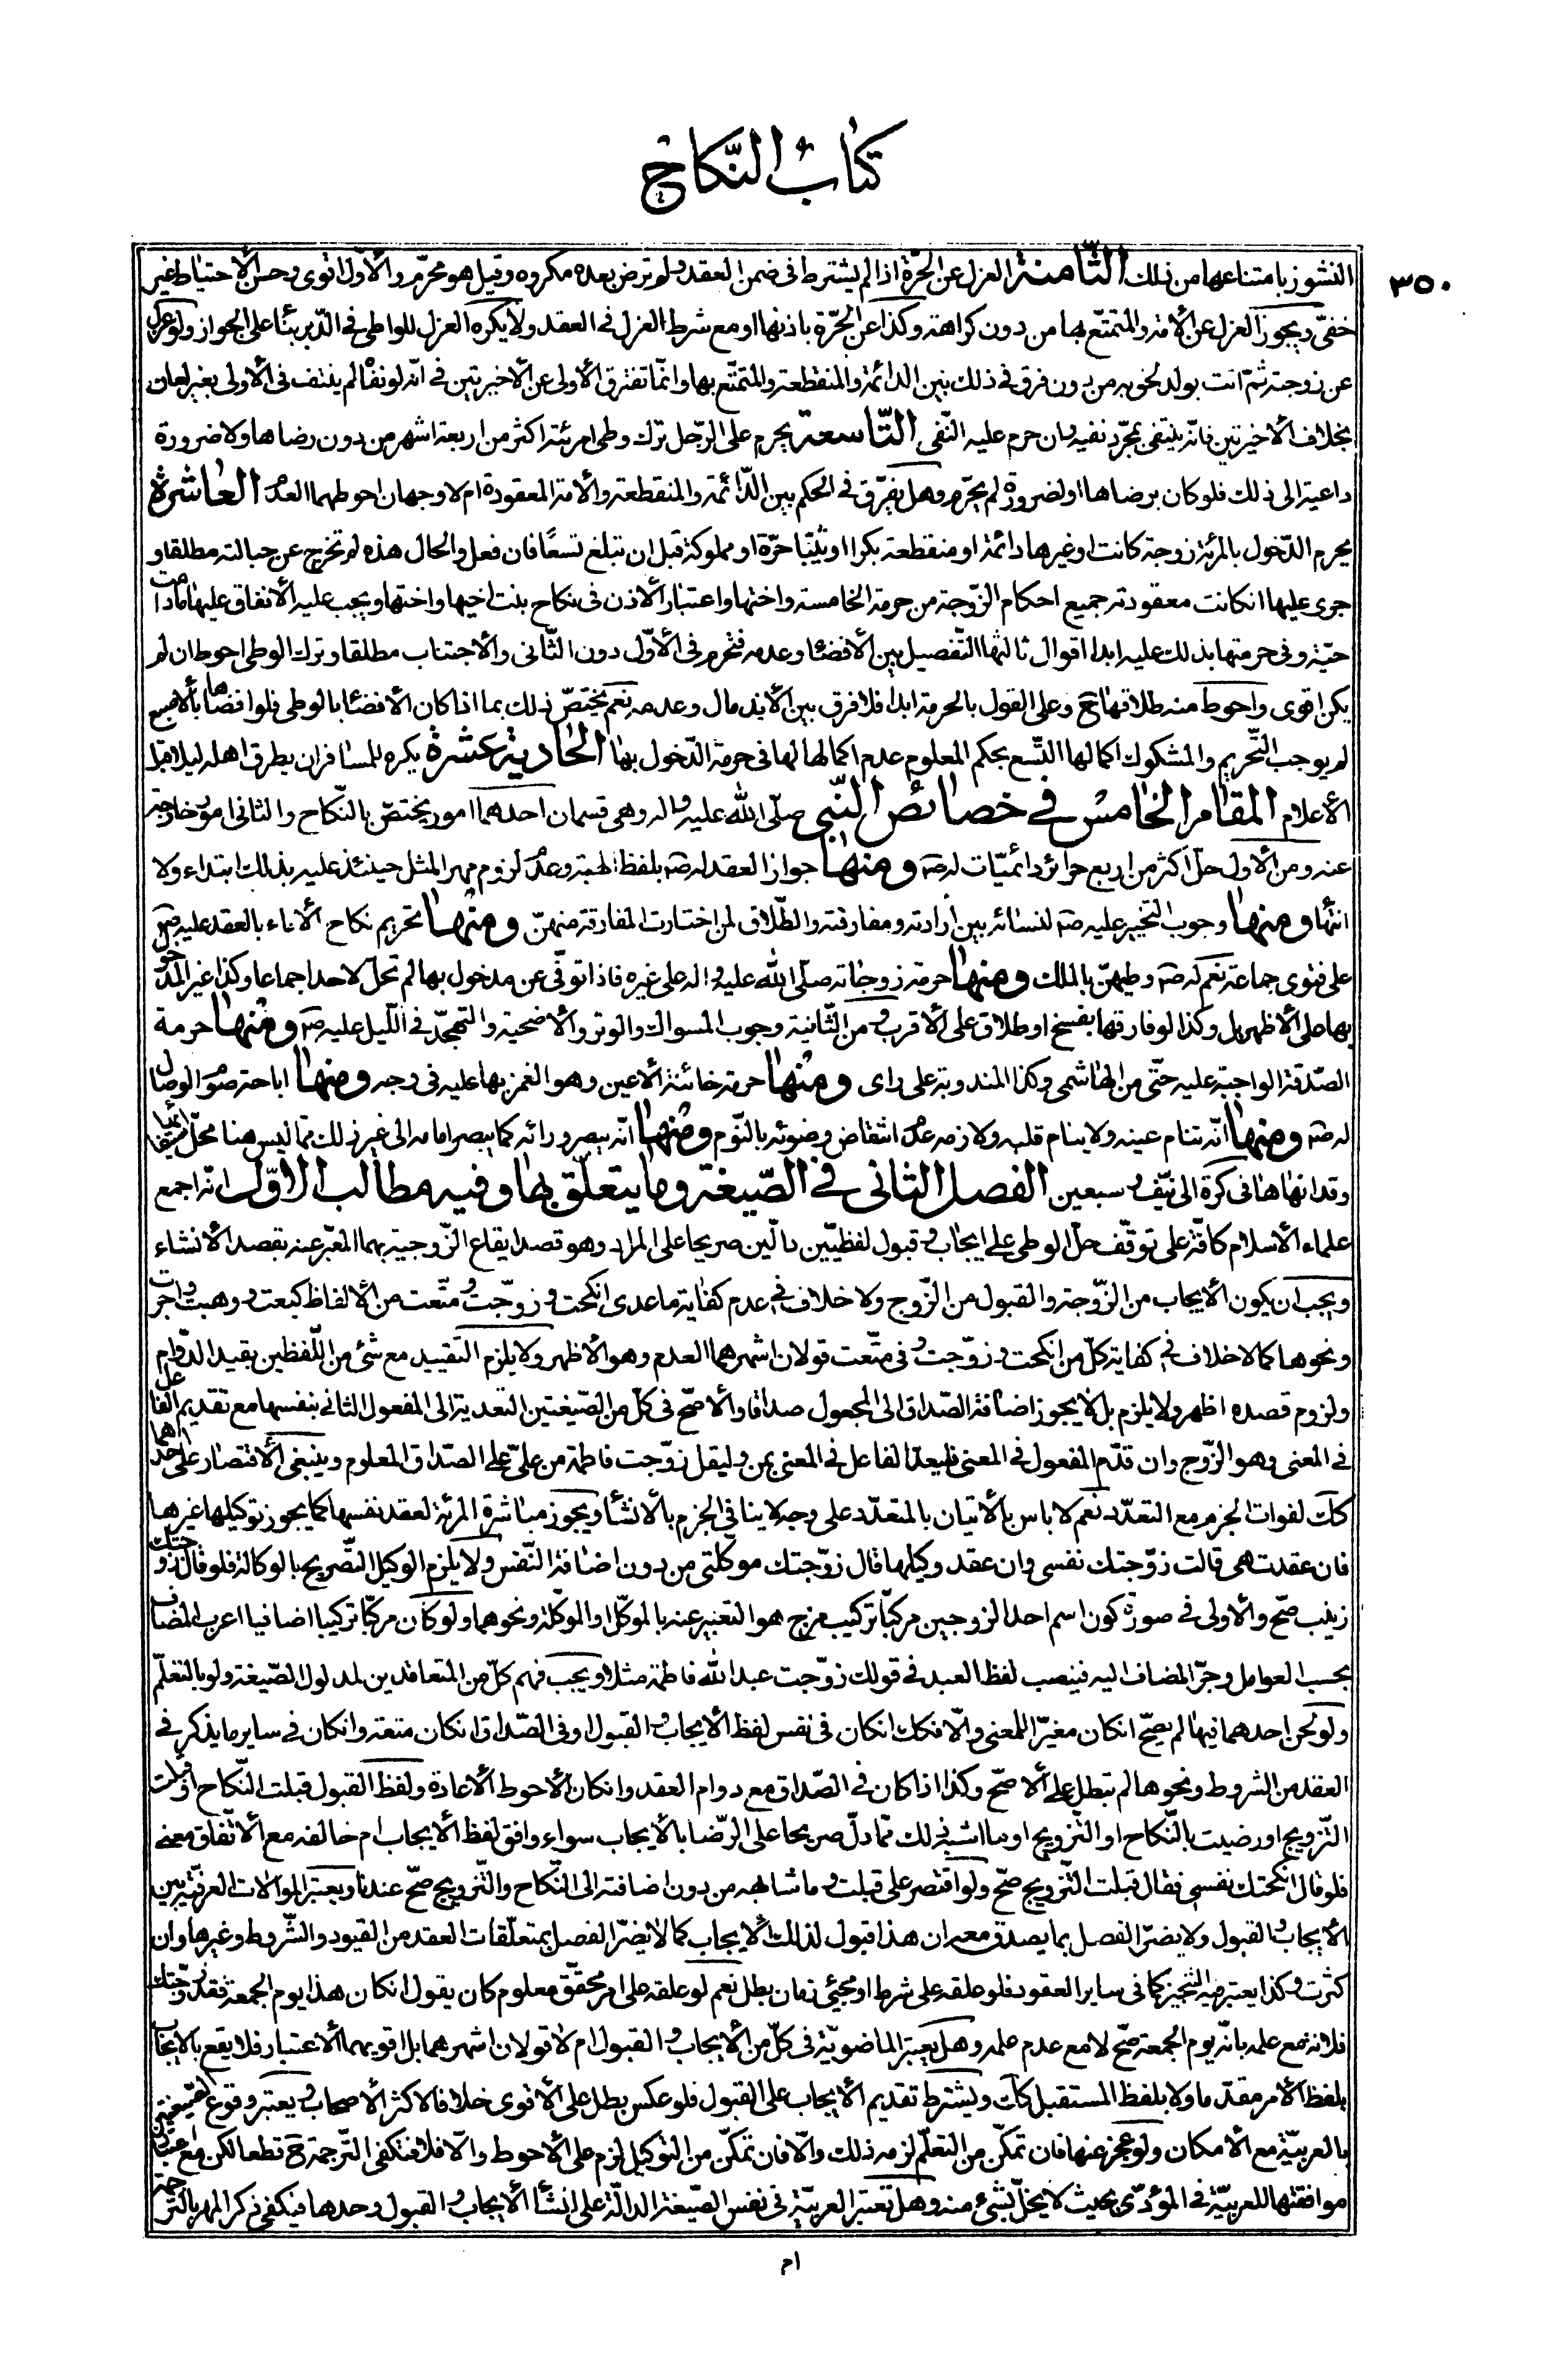 كتاب النّكاح
٣٥٠
النشوز بامتناعها من ذلك الثّامنة العزل عن الحرّة اذا لم يشترط فى ضمن العقد ولم ترض بعده مكروه وقيل هو محرّم والأوّل اقوى وحسن الأحتياط غير
خفىّ ويجوز العزل عن الأمة والمتمتّع بها من دون كراهة وكذا عن الحرّة باذنها او مع شرط العزل فى العقد ولا يكره العزل للواطى فى الدّبر بنأ على الجواز ولو عزل
عن زوجته ثمّ اتت بولد لحق به من دون فرق فى ذلك بين الدائمة والمنقطعة والمتمتّع بها وانّما تفترق الأولى عن الأخيرتين فى انّه لو نفاه لم ينتف فى الأولى بغير لعان
بخلاف الأخيرتين فانّه ينتفى بمجرّد نفيه وان حرم عليه النّفى التّاسعة يحرم على الرّجل ترك وطى امرئته اكثر من اربعة اشهر من دون رضاها ولا ضرورة
داعية الى ذلك فلو كان برضاها او لضرورة لم يحرم وهل يفرّق فى الحكم بين الدّائمة والمنقطعة والأمة المعقودة ام لا وجهان احوطهما العدم العاشرة
يحرم الدّخول بالمرئة زوجة كانت او غيرها دائمة او منقطعة بكرا او ثيّبا حرّة او مملوكة قبل ان تبلغ تسعًا فان فعل والحال هذه لم تخرج عن حبالته مطلقا و
جرى عليها انكانت معقودته جميع احكام الزّوجة من حرمة الخامسة واختها واعتبار الأذن فى نكاح بنت اخيها واختها ويجب عليه الأنفاق عليها مادامت
حيّة وفى حرمتها بذلك عليه ابدا اقوال ثالثها التّفصيل بين الأفضأ وعدمه فتحرم فى الأوّل دون الثّانى والأجتناب مطلقا وترك الوطى احوط ان لم
يكن اقوى واحوط منه طلاقها ح وعلى القول بالحرمة ابدا فلا فرق بين الأندمال وعدمه نعم يختصّ ذلك بما اذا كان الأفضأ بالوطى فلو افضاها بالأصبع
لم يوجب التّحريم والمشكوك اكمالها التّسع بحكم المعلوم عدم اكمالها لها فى حرمة الدّخول بها الحادية عشرة يكره للمسافر ان يطرق اهله ليلا قبل
الأعلام المقام الخامس فى خصائص النّبى صلّى الله عليه واله وهى قسمان احدهما امور يختصّ بالنّكاح والثانى امور خارجة
عنه ومن الأول حلّ اكثر من اربع حرائر دائميّات له ص ومنها جواز العقد له ص بلفظ الهبة وعدم لزوم مهر المثل حينئذ عليه بذلك ابتداء ولا
انتهأ ومنها وجوب التّخيير عليه ص لنسائه بين ارادته ومفارقته والطّلاق لمن اختارت المفارقة منهنّ ومنها تحريم نكاح الأماء بالعقد عليه ص
على فتوى جماعة نعم له ص وطيهنّ بالملك ومنها حرمة زوجاته صلّى الله عليه واله على غيره فاذا توفّى عن مدخول بها لم تحلّ لاحد اجماعا وكذا غير المدخول
بها على الأظهر بل وكذا لو فارقها بفسخ او طلاق على الأقرب و من الثّانية وجوب المسواك والوتر والأضحية والتهجّد فى اللّيل عليه ص ومنها حرمة
الصّدقة الواجبة عليه حتّى من الهاشمى وكذا المندوبة على راى ومنها حرمة خائنة الأعين وهو الغمز بها عليه فى وجه ومنها اباحة صوم الوصال
له ص ومنها انّه تنام عينه ولا ينام قلبه ولازمه عدم انتقاض وضوئه بالنّوم ومنها انّه يبصر ورائه كما يبصر امامه الى غير ذلك ممّا ليس هنا محلّ استيفائها
وقد انهاها فى كرة الى نيّف و سبعين الفصل الثانى فى الصّيغة وما يتعلّق بها وفيه مطالب الأوّل انّه اجمع
علماء الأسلام كافّة على توقّف حلّ الوطى على ايجاب و قبول لفظيّين دالّين صريحا على المراد وهو قصد ايقاع الزّوجية بهما المعبّر عنه بقصد الأنشاء
ويجب ان يكون الأيجاب من الزّوجة والقبول من الزّوج ولا خلاف فى عدم كفاية ما عدى انكحت و زوّجت و متّعت من الألفاظ كبعت و وهبت واجرت
ونحوها كما لا خلاف فى كفاية كلّ من انكحت و زوّجت و فى متّعت قولان اشهرهما العدم وهو الأظهر ولا يلزم التّقييد مع شئ من اللّفظين بقيد الدّوام
ولزوم قصده اظهر ولا يلزم بل لا يجوز اضافة الصّداق الى المجعول صداقا والأصحّ فى كلّ من الصّيغتين التّعدية الى المفعول الثانى بنفسها مع تقديم الفاعل
فى المعنى وهو الزّوج وان قدّم المفعول فى المعنى فليعدّ الفاعل فى المعنى بمن وليقل زوّجت فاطمة من علىّ على الصّداق المعلوم وينبغى الأقتصار على احدهما
كك لفوات الجزم مع التعدّد نعم لا باس بالأتيان بالمتعدّد على وجه لا ينافى الجزم بالأنشأ ويجوز مباشرة المرئة لعقد نفسها كما يجوز توكيلها غيرها
فان عقدت هى قالت زوّجتك نفسى وان عقد وكيلها قال زوّجتك موكّلتى من دون اضافة النّفس ولا يلزم الوكيل التّصريح بالوكالة فلو قال زوّجتك
زينب صحّ والاولى فى صورة كون اسم احد الزوجين مركّبا تركيب مزج هو التعبير عنه بالموكّل او الموكّلة ونحوهما ولو كان مركّبا تركيبا اضافيا اعرب المضاف
بحسب العوامل وجرّ المضاف اليه فينصب لفظ العبد فى قولك زوّجت عبد الله فاطمة مثلا ويجب فهم كلّ من المتعاقدين لمدلول الصّيغة ولو بالتعلّم
ولو لحن احدهما فيها لم يصحّ انكان مغيّرا للمعنى والّا فكك انكان فى نفس لفظ الأيجاب و القبول او فى الصّداق انكان متعة وانكان فى ساير ما يذكر فى
العقد من الشروط ونحوها لم تبطل على الأصحّ وكذا اذا كان فى الصّداق مع دوام العقد وانكان الأحوط الأعادة ولفظ القبول قبلت النّكاح او قبلت
التّزويج او رضيت بالنّكاح او التّزويج او ما اشبه ذلك ممّا دلّ صريحا على الرّضا بالأيجاب سواء وافق لفظ الأيجاب ام خالفه مع الأتّفاق معنى
فلو قال انكحتك نفسى فقال قبلت التّزويج صحّ ولو اقتصر على قبلت و ما شابهه من دون اضافته الى النّكاح والتّزويج صحّ عندنا ويعتبر الموالات العرفيّة بين
الأيجاب و القبول ولا يضرّ الفصل بما يصدق معه ان هذا قبول لذلك الأيجاب كما لا يضرّ الفصل بمتعلّقات العقد من القيود والشّروط وغيرها وان
كثرت وكذا يعتبر فيه التنجيز كما فى ساير العقود فلو علّقه على شرط او مجيئ زمان بطل نعم لو علقه على امر محقّق معلوم كان يقول انكان هذا يوم الجمعة فقد زوّجتك
فلانة مع علمه بانّه يوم الجمعة صحّ لا مع عدم علمه وهل يعتبر الماضويّة فى كلّ من الأيجاب و القبول ام لا قولان اشهرهما بل اقويهما الأعتبار فلا يقع بالأيجاب
بلفظ الأمر مقدّما ولا بلفظ المستقبل كك ويشترط تقديم الأيجاب على القبول فلو عكس بطل على الأقوى خلافا لاكثر الأصحاب و يعتبر وقوع الصّيغتين
بالعربيّة مع الأمكان ولو عجز عنها فان تمكّن من التعلّم لزمه ذلك والّا فان تمكّن من التوكيل لزم على الأحوط والّا فلا فتكفى التّرجمة ح قطعا لكن مع اعتبار
موافقتها للعربيّة فى المؤدّى بحيث لا يخلّ بشىء منه وهل تعتبر العربيّة فى نفس الصّيغة الدالّة على انشأ الأيجاب و القبول وحدها فيكفى ذكر المهر بالترجمة
ام